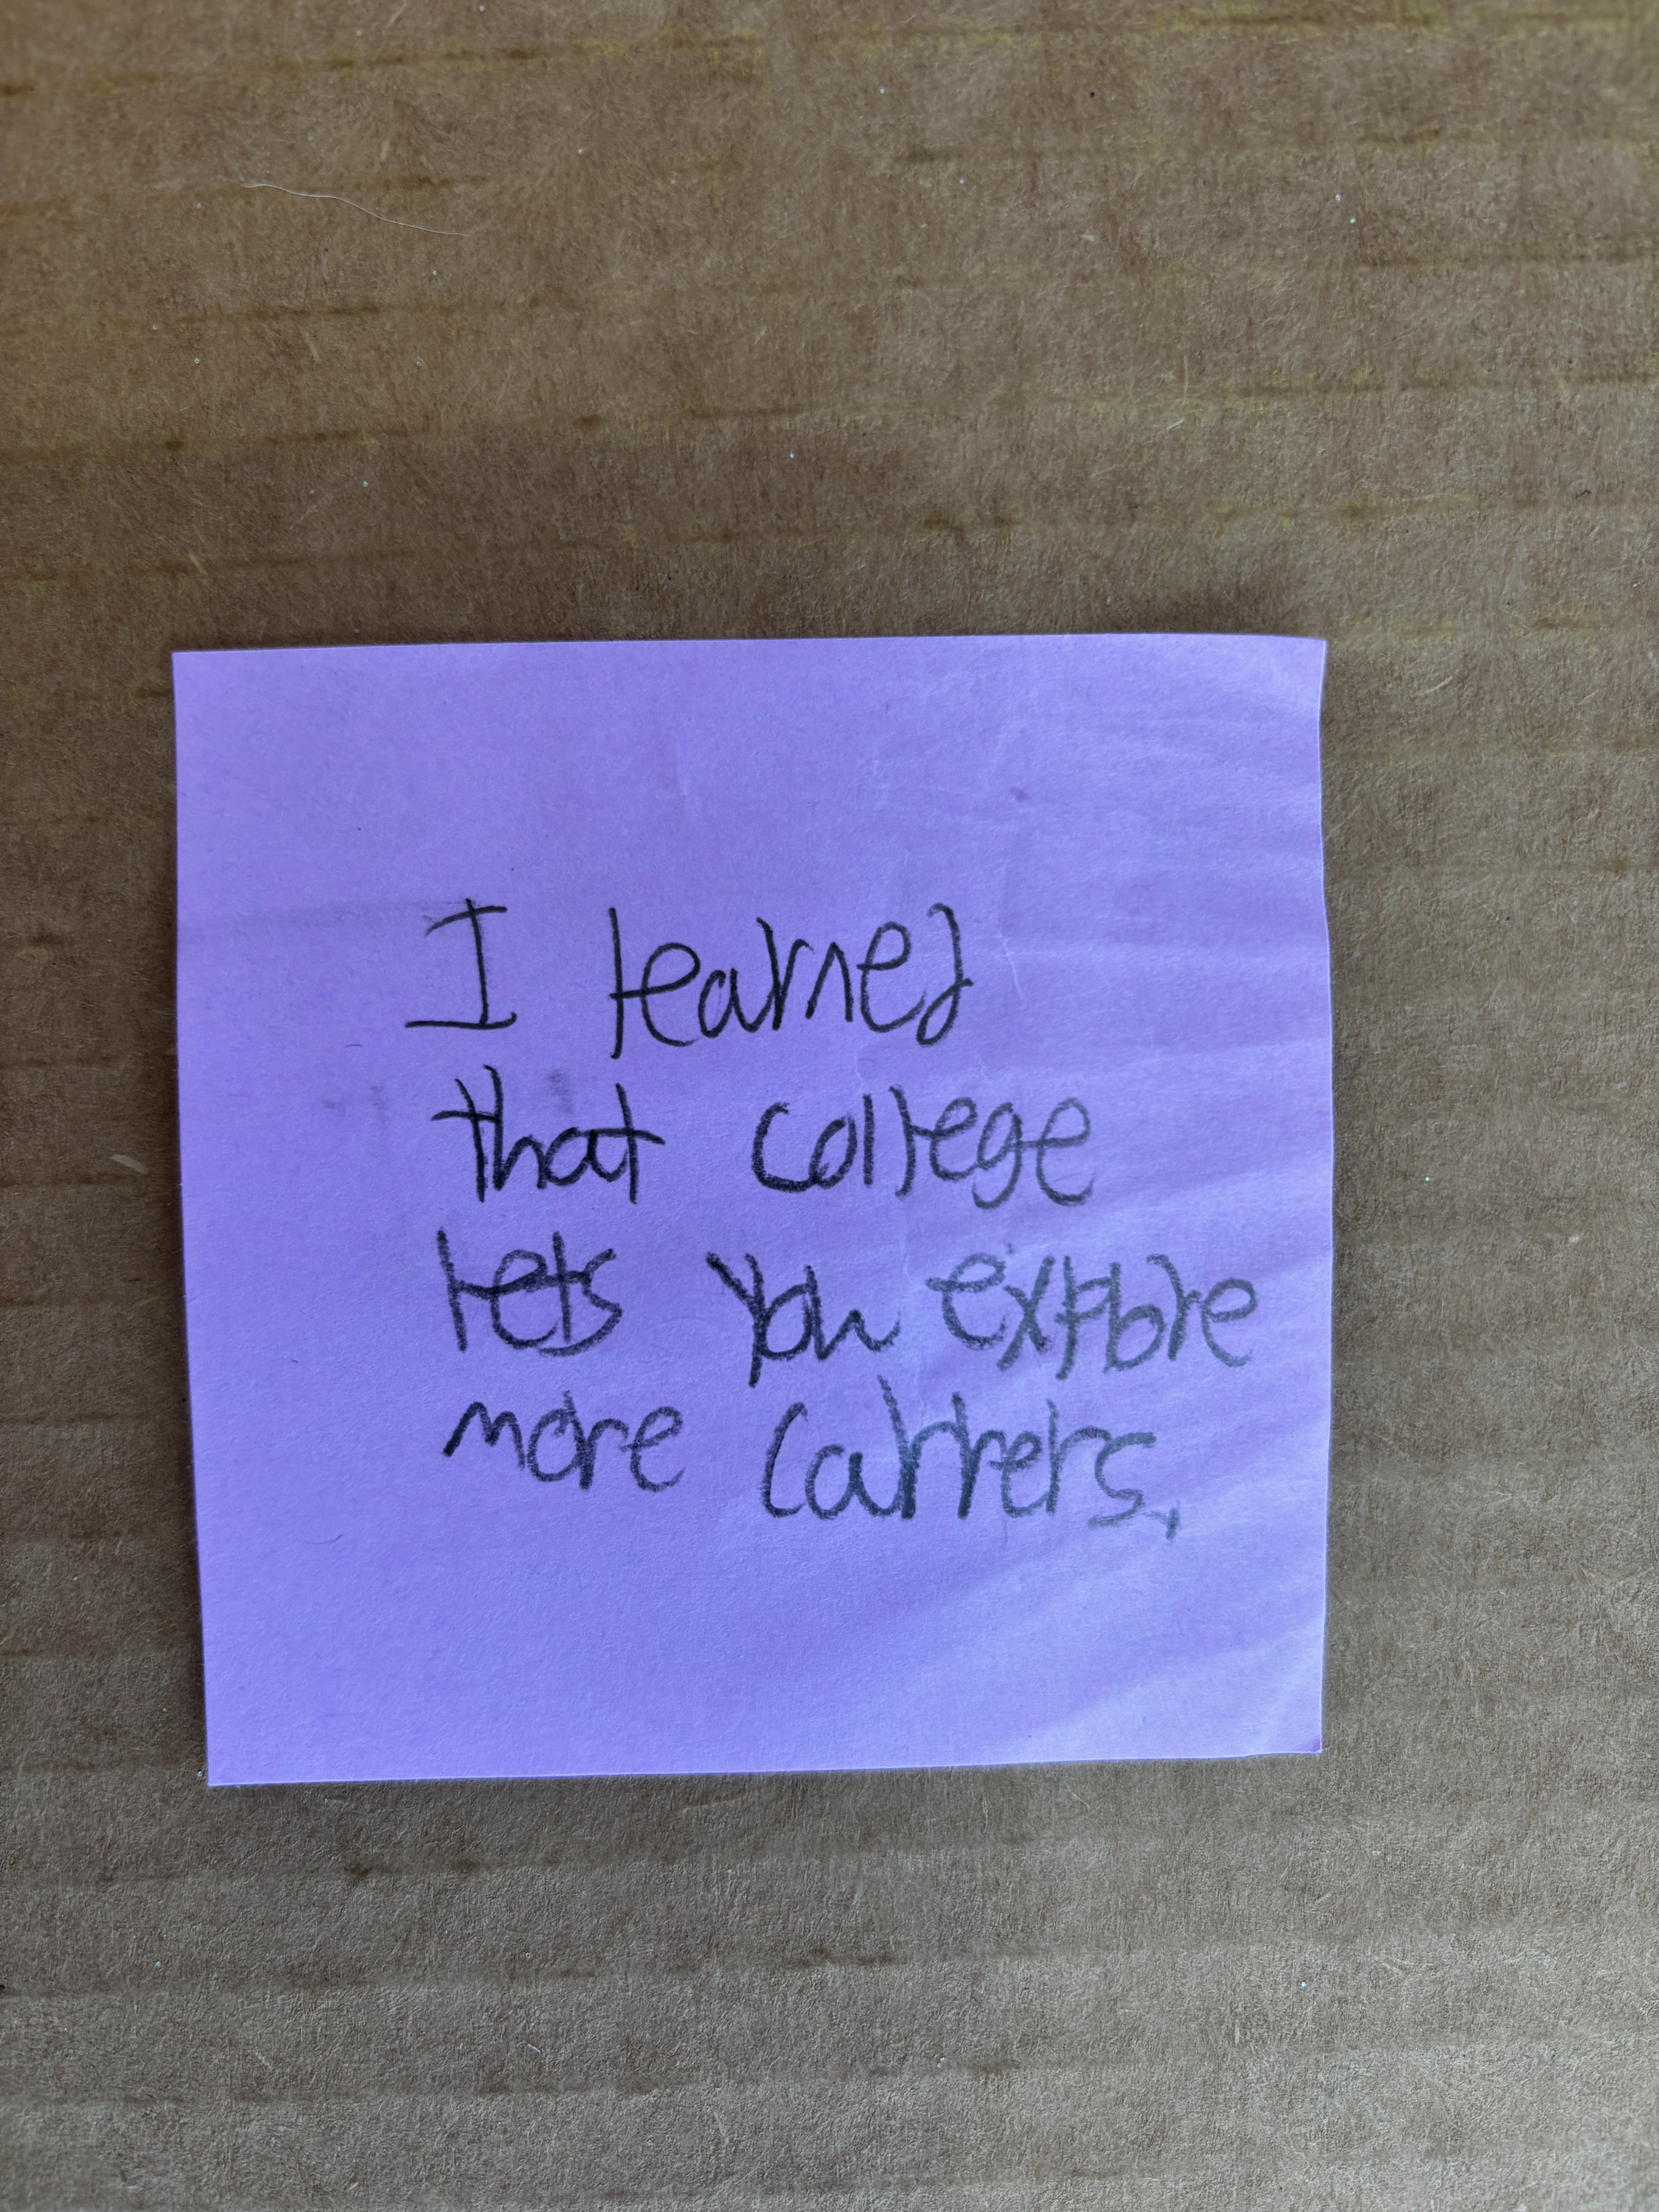 I learned
that college
lets you explore
more carrers.